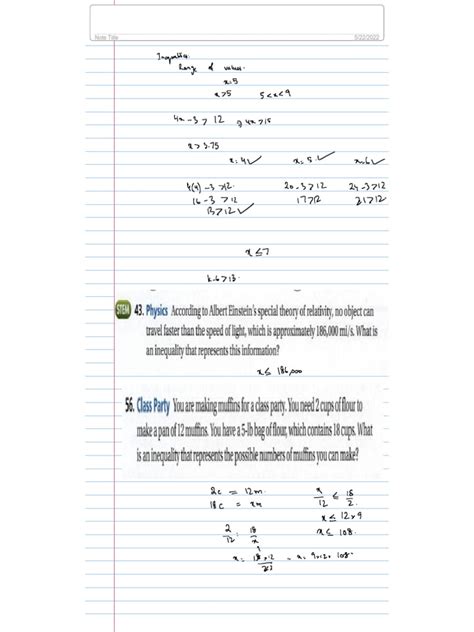 Note Title
5/22/2022
Inequalities.
Range of values.
x=5
x>5 5<x<9
4x-3 > 12 ⇒ 4x > 15
x > 3.75
x=4✓ x=5.✓ x=6✓
4(4)-3 >12. 20-3>12 24-3>12
16-3 >12 17>12 21>12
13>12✓
x≤7
k-6>13.
STEM 43. Physics According to Albert Einstein's special theory of relativity, no object can
travel faster than the speed of light, which is approximately 186,000 mi/s. What is
an inequality that represents this information?
x≤ 186,000
56. Class Party You are making muffins for a class party. You need 2 cups of flour to
make a pan of 12 muffins. You have a 5-lb bag of flour, which contains 18 cups. What
is an inequality that represents the possible numbers of muffins you can make?
2c = 12m.
18c = xm
x/12 ≤ 18/2
x ≤ 12×9
x ≤ 108.
2/12 = 18/x
x = 18×12/2 = x = 9×12 = 108